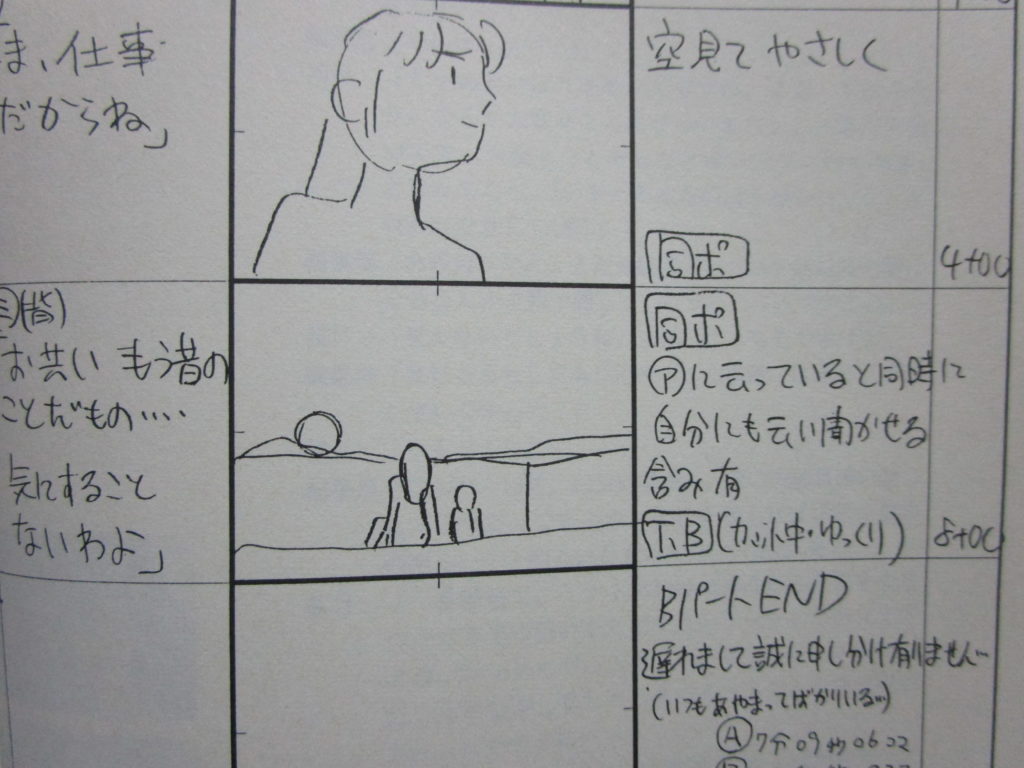 ま、仕事
だからね」
空見て やさしく
同ポ
4+00
(背)
お共い もう昔の
ことだもの‥‥
気にすること
ないわよ」
同ポ
アに云っていると同時に
自分にも云い聞かせる
含み有
T.B (カット中・ゆっくり)
8+00
Bパート END
遅れまして誠に申しわけ有りません…
(いつもあやまってばかりいる…)
A 7分09秒06コマ